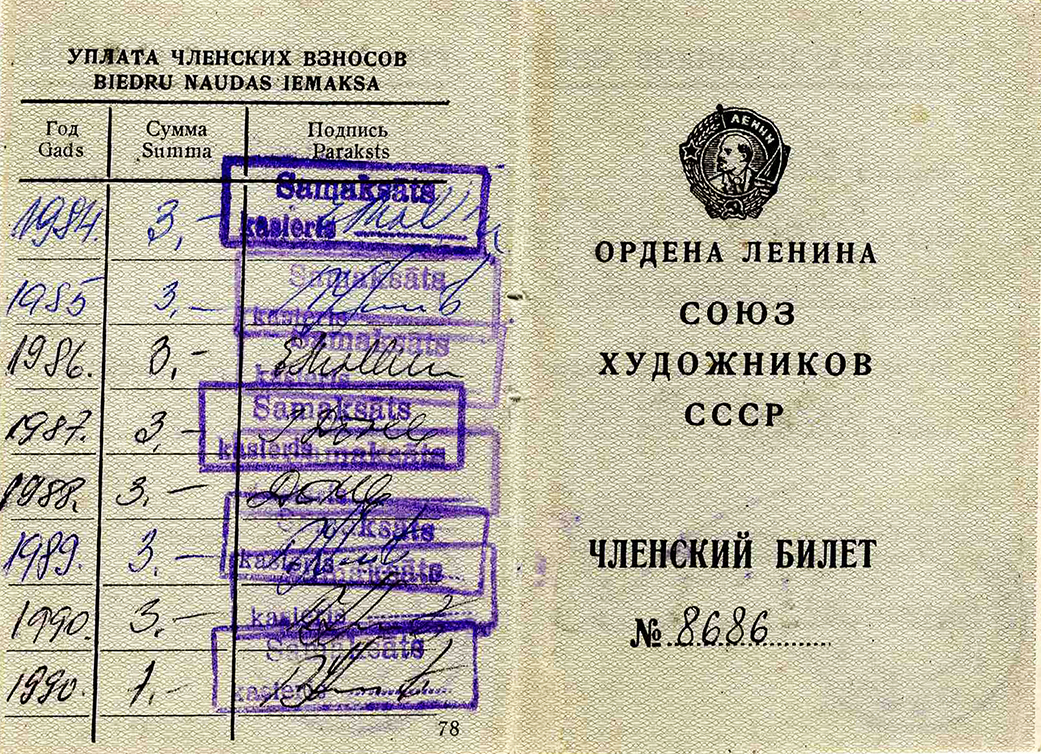 УПЛАТА ЧЛЕНСКИХ ВЗНОСОВ
BIEDRU NAUDAS IEMAKSA
Год Сумма Подпись
Gads Summa Paraksts
1984. 3,-
Samaksāts
kasieris
1985 3,-
Samaksāts
kasieris
1986. 3,-
Samaksāts
kasieris
1987. 3,-
Samaksāts
kasieris
Samaksāts
1988. 3.-
1989. 3.-
Samaksāts
kasieris
Samaksāts
1990. 3.-
kasieris
Samaksāts
1990. 1.-
kasieris
78
ЛЕНИН
ОРДЕНА ЛЕНИНА
СОЮЗ
ХУДОЖНИКОВ
СССР
ЧЛЕНСКИЙ БИЛЕТ
№ 8686